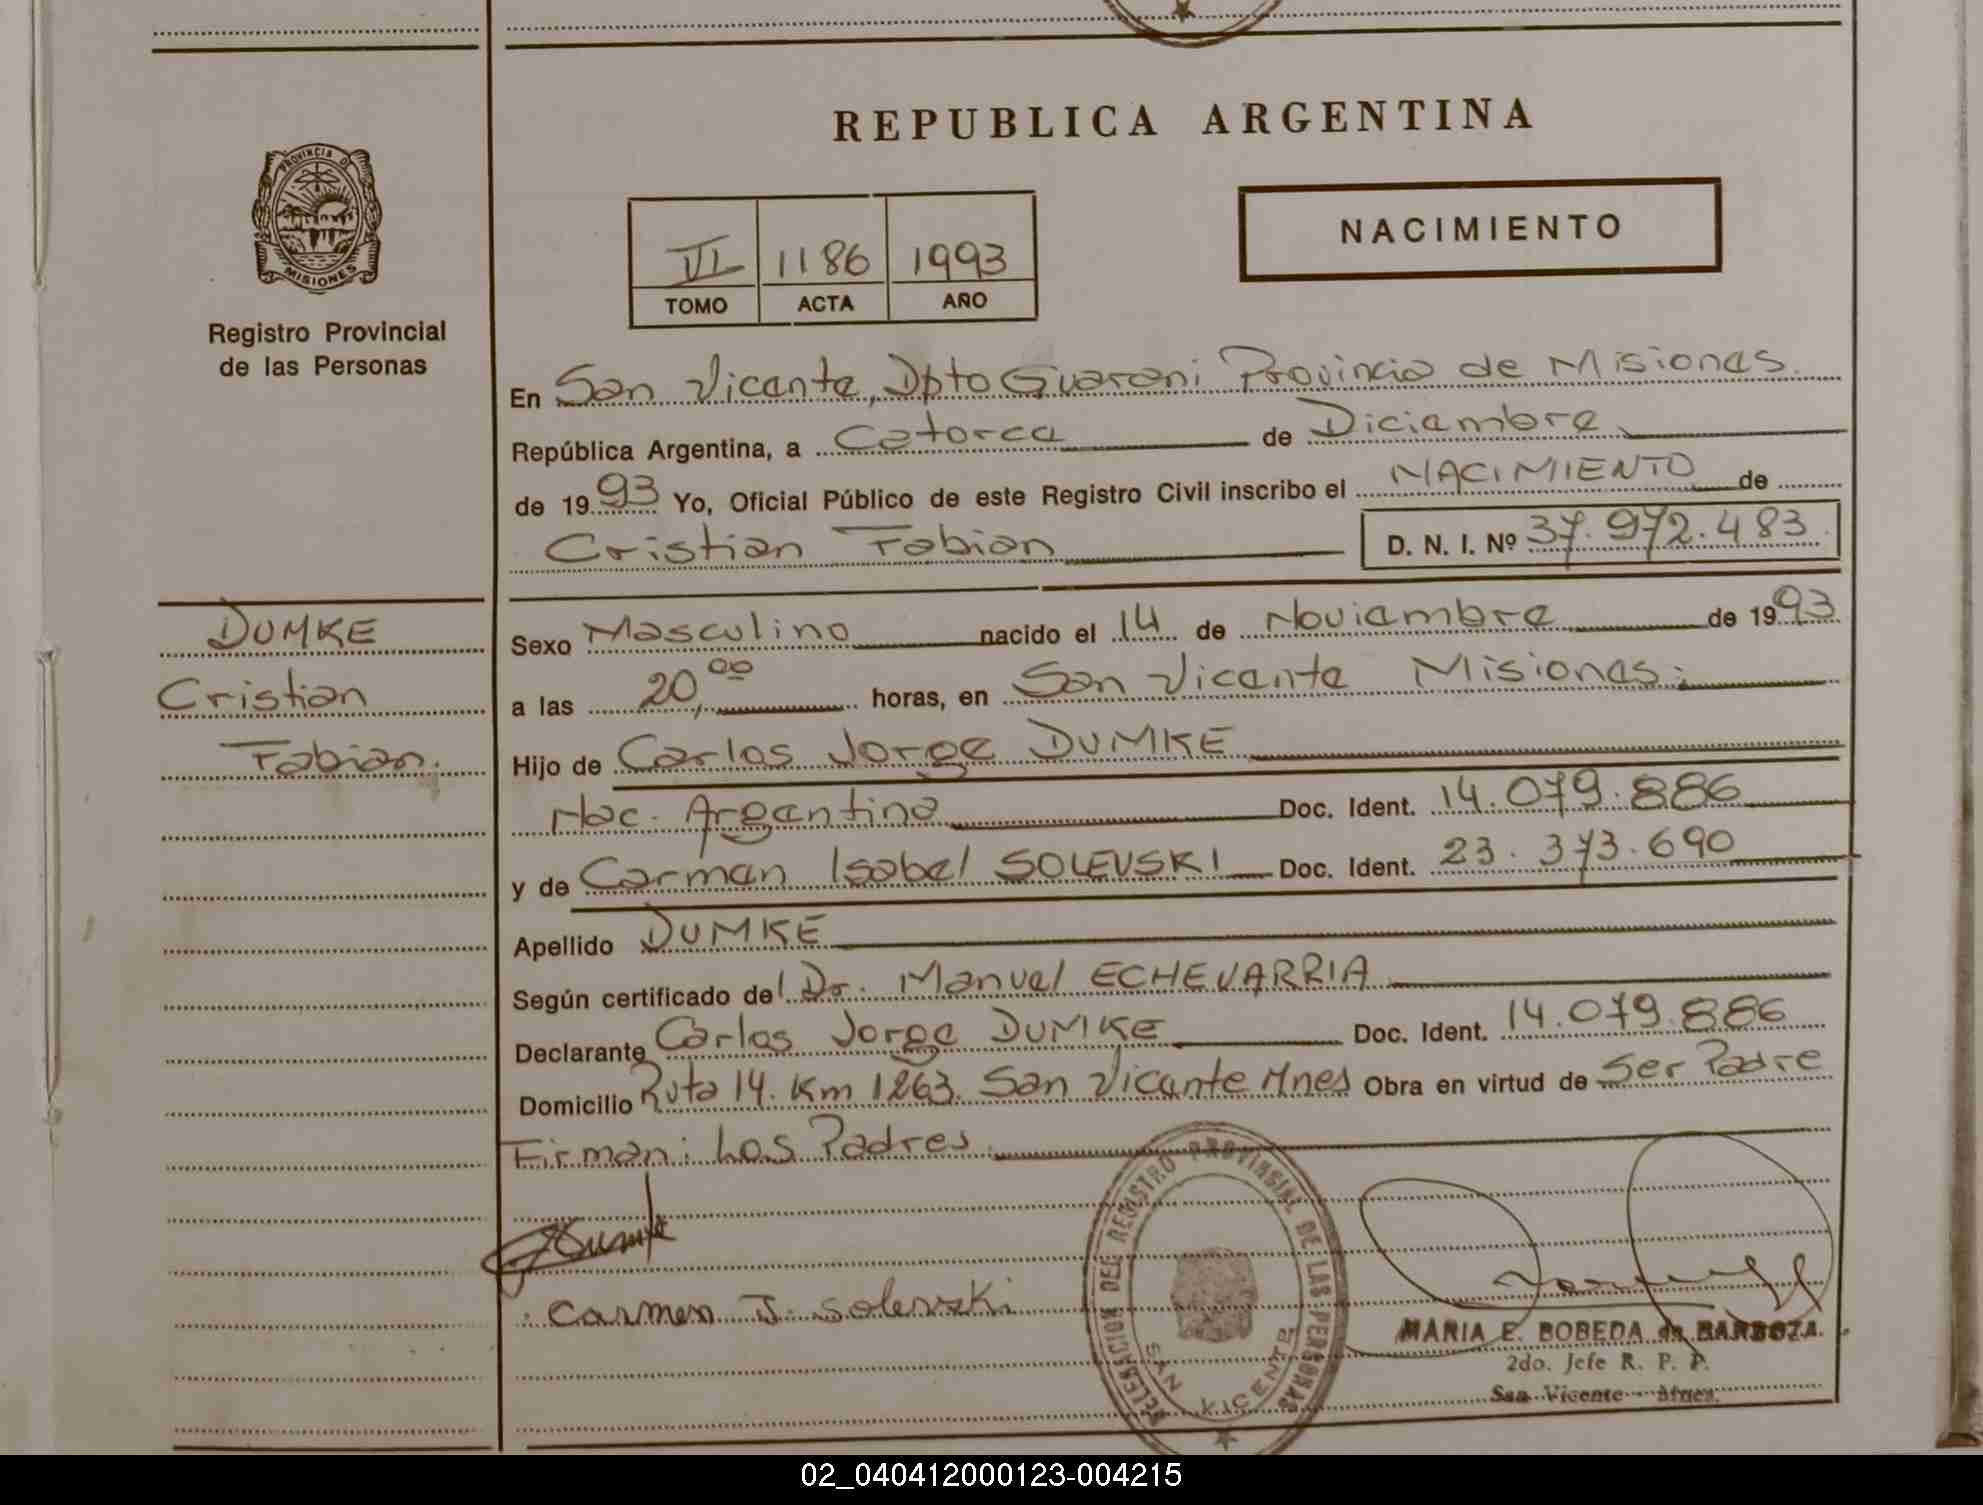 REPUBLICA ARGENTINA
PROVINCIA DE
MISIONES
Registro Provincial
de las Personas
NACIMIENTO
VI 1186 1993
TOMO ACTA AÑO
En San Vicente, Dpto Guarani Provincia de Misiones.
República Argentina, a Catorce de Diciembre
de 1993 Yo, Oficial Público de este Registro Civil inscribo el NACIMIENTO de
Cristian Fabian D. N. I. Nº 37.972.483
DUMKE
Cristian
Fabian.
Sexo Masculino nacido el 14 de Noviembre de 1993
a las 20,00 horas, en San Vicente Misiones.
Hijo de Carlos Jorge DUMKE
Nac. Argentino Doc. Ident. 14.079.886
y de Carmen Isabel SOLEVSKI Doc. Ident. 23.373.690
Apellido DUMKE
Según certificado del Dr. Manuel ECHEVARRIA
Declarante Carlos Jorge DUMKE Doc. Ident. 14.079.886
Domicilio Ruta 14. Km 1263. San Vicente Mnes Obra en virtud de Ser Padre
Firman: Los Padres.
Dumke
Carmen I. Solevski
DELEGACION DEL REGISTRO PROVINCIAL DE LAS PERSONAS
SAN VICENTE
MARIA E. BOBEDA de BARBOZA
2do. Jefe R. P. P.
San Vicente - Mnes.
02_040412000123-004215